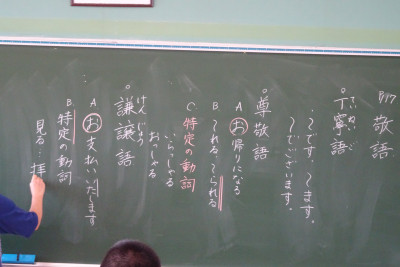 P.117 敬語
ていねいご
○丁寧語
・～です。～ます。
～でございます。
○尊敬語
A お帰りになる
B ～れる、～られる
C 特定の動詞
いらっしゃる
おっしゃる
けんじょう
○謙譲語
A お支払いいたします
B 特定の動詞
見る…拝